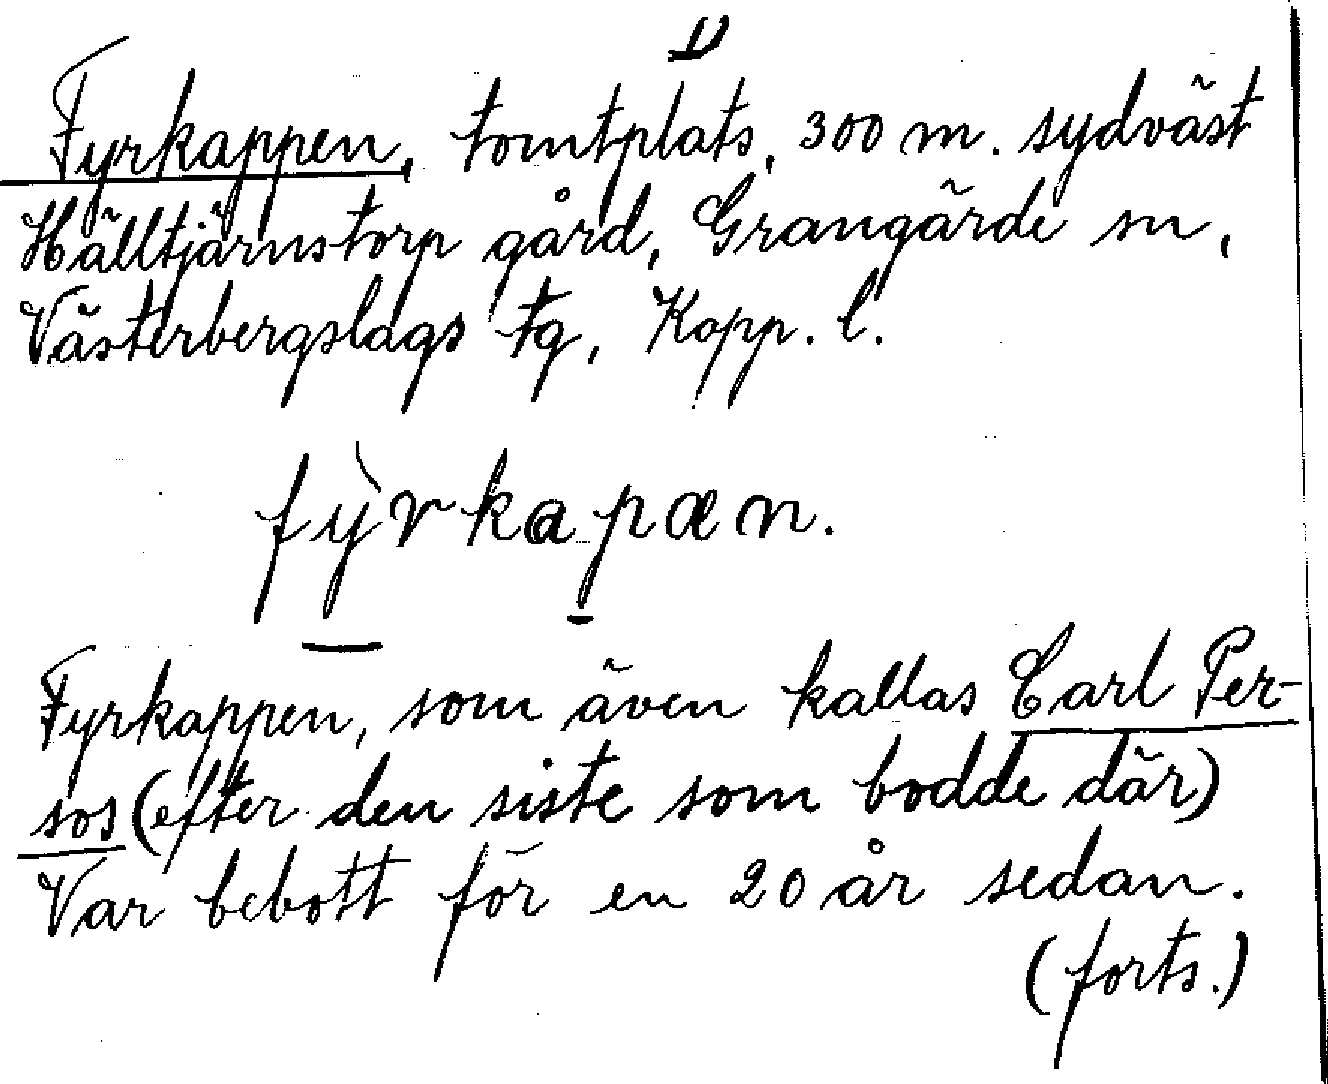 1)
Fyrkappen, tomtplats, 300 m. sydväst
Hälltjärnstorp gård, Grangärde sn,
Västerbergslags tg, Kopp. l.
fỳrkapæn.
Fyrkappen, som även kallas Carl Per-
sos (efter den siste som bodde där)
Var bebott för en 20 år sedan.
(forts.)